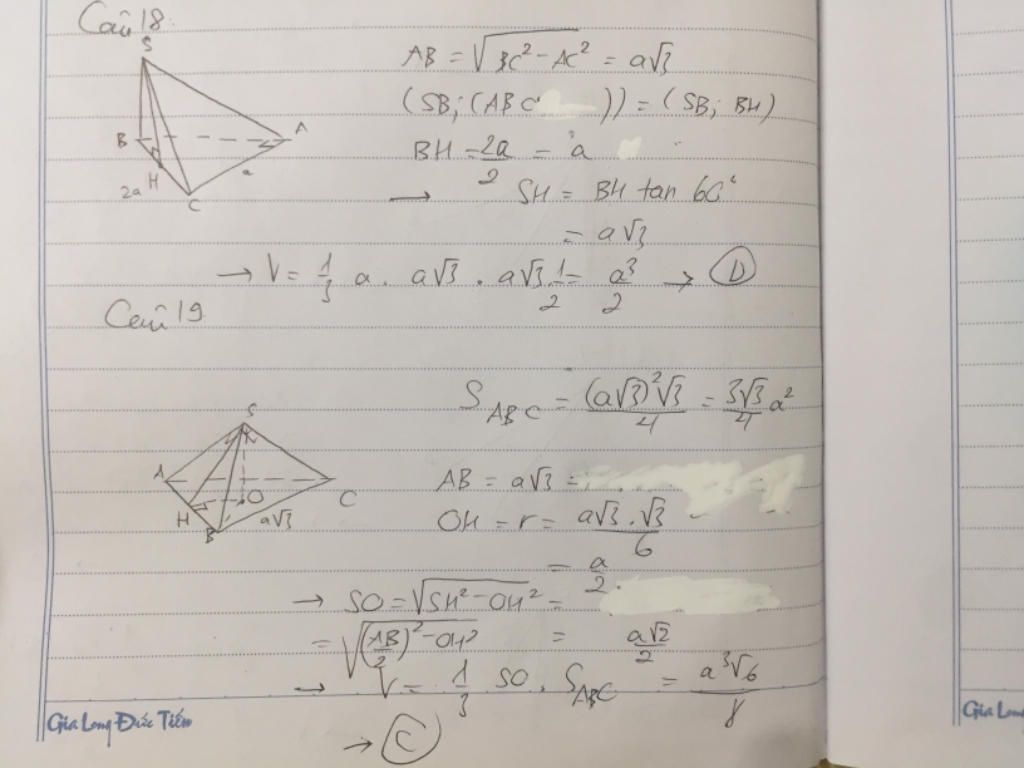 Câu 18
S
B
A
H
2a
a
C
AB = √(BC² - AC²) = a√3
(SB; (ABC)) = (SB; BH)
BH = 2a/2 = a
→ SH = BH tan 60°
= a√3
→ V = 1/3 a . a√3 . a√3 . 1/2 = a³/2 → D
Câu 19
S
A
O
C
H
a√3
B
S_ABC = (a√3)²√3/4 = 3√3/4 a²
AB = a√3 =
OH = r = a√3 . √3/6
= a/2.
→ SO = √(SH² - OH²) =
= √((AB/2)² - OH²) = a√2/2
→ V = 1/3 SO . S_ABC = a³√6/8
→ C
Gia Long Đức Tiến
Gia Lon